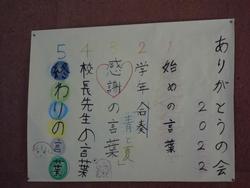 ありがとうの会
2022
1 始めの言葉
2 学年合奏
「青と夏」
3 感謝の言葉
4 校長先生の言葉
5 終わりの言葉